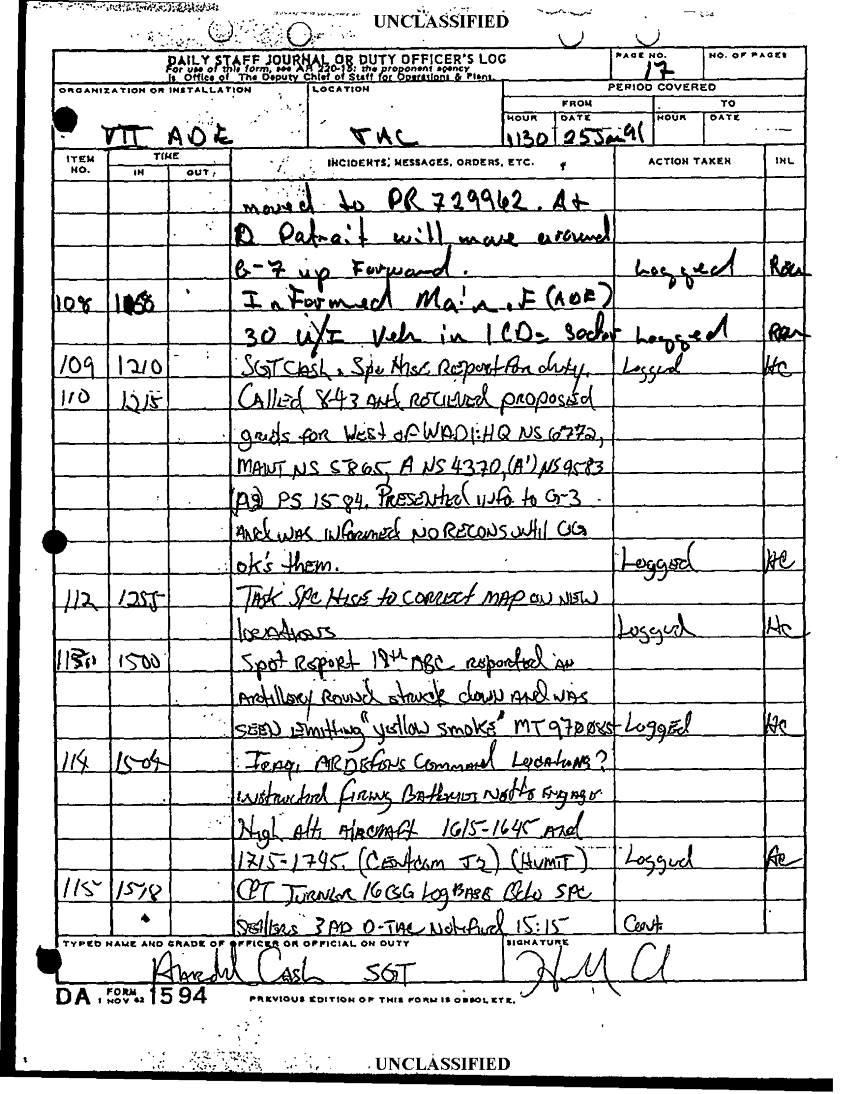 UNCLASSIFIED
DAILY STAFF JOURNAL OR DUTY OFFICER'S LOG
For use of this form, see AR 220-15; the proponent agency
is Office of The Deputy Chief of Staff for Operations & Plans.
PAGE NO.
17
NO. OF PAGES
ORGANIZATION OR INSTALLATION
VII ADE
LOCATION
TAC
PERIOD COVERED
FROM
TO
HOUR
1130
DATE
25 Jan 91
HOUR
DATE
ITEM NO.
TIME
IN
OUT
INCIDENTS, MESSAGES, ORDERS, ETC.
ACTION TAKEN
INL
moved to PR 729962. At
D Patrait will move around
B-7 up Forward. Logged
108 1158 Informed Main. E (ADE)
30 U/I Veh in 1CD= Sector Logged
109 1210 SGT Cash, Spc Hise Report for duty. Logged HC
110 1215 Called 8-43 AND RECIEVED PROPOSED
grids for West of WADI: HQ NS 6772,
MAINT NS 5865, A NS 4370, (A') NS 9583
(A2) PS 1584. PRESENTED info to G-3
AND WAS INFORMED NO RECONS until CG
ok's them. Logged HC
112 1255 TASK SPC HISE TO CORRECT MAP ON NEW
locations Logged HC
1500 Spot Report 18th ABC reported an
Artillery Round struck down AND was
SEEN Emitting "yellow smoke" MT 970085 Logged HC
114 1504 Iraqi AIR DEFENS Command Locations?
instructed firing Batteries Not to Engage
High Alt. AIRCRAFT 1615-1645 and
1715-1745. (CENTCOM J2) (HUMIT) Logged HC
115 1518 CPT TURNER 16 CSG Log BASE SPC
Sellers 3 AD D-TAC Notified 15:15 Cont.
TYPED NAME AND GRADE OF OFFICER OR OFFICIAL ON DUTY
Cash SGT
SIGNATURE
DA FORM 1594
1 NOV 62
PREVIOUS EDITION OF THIS FORM IS OBSOLETE.
UNCLASSIFIED